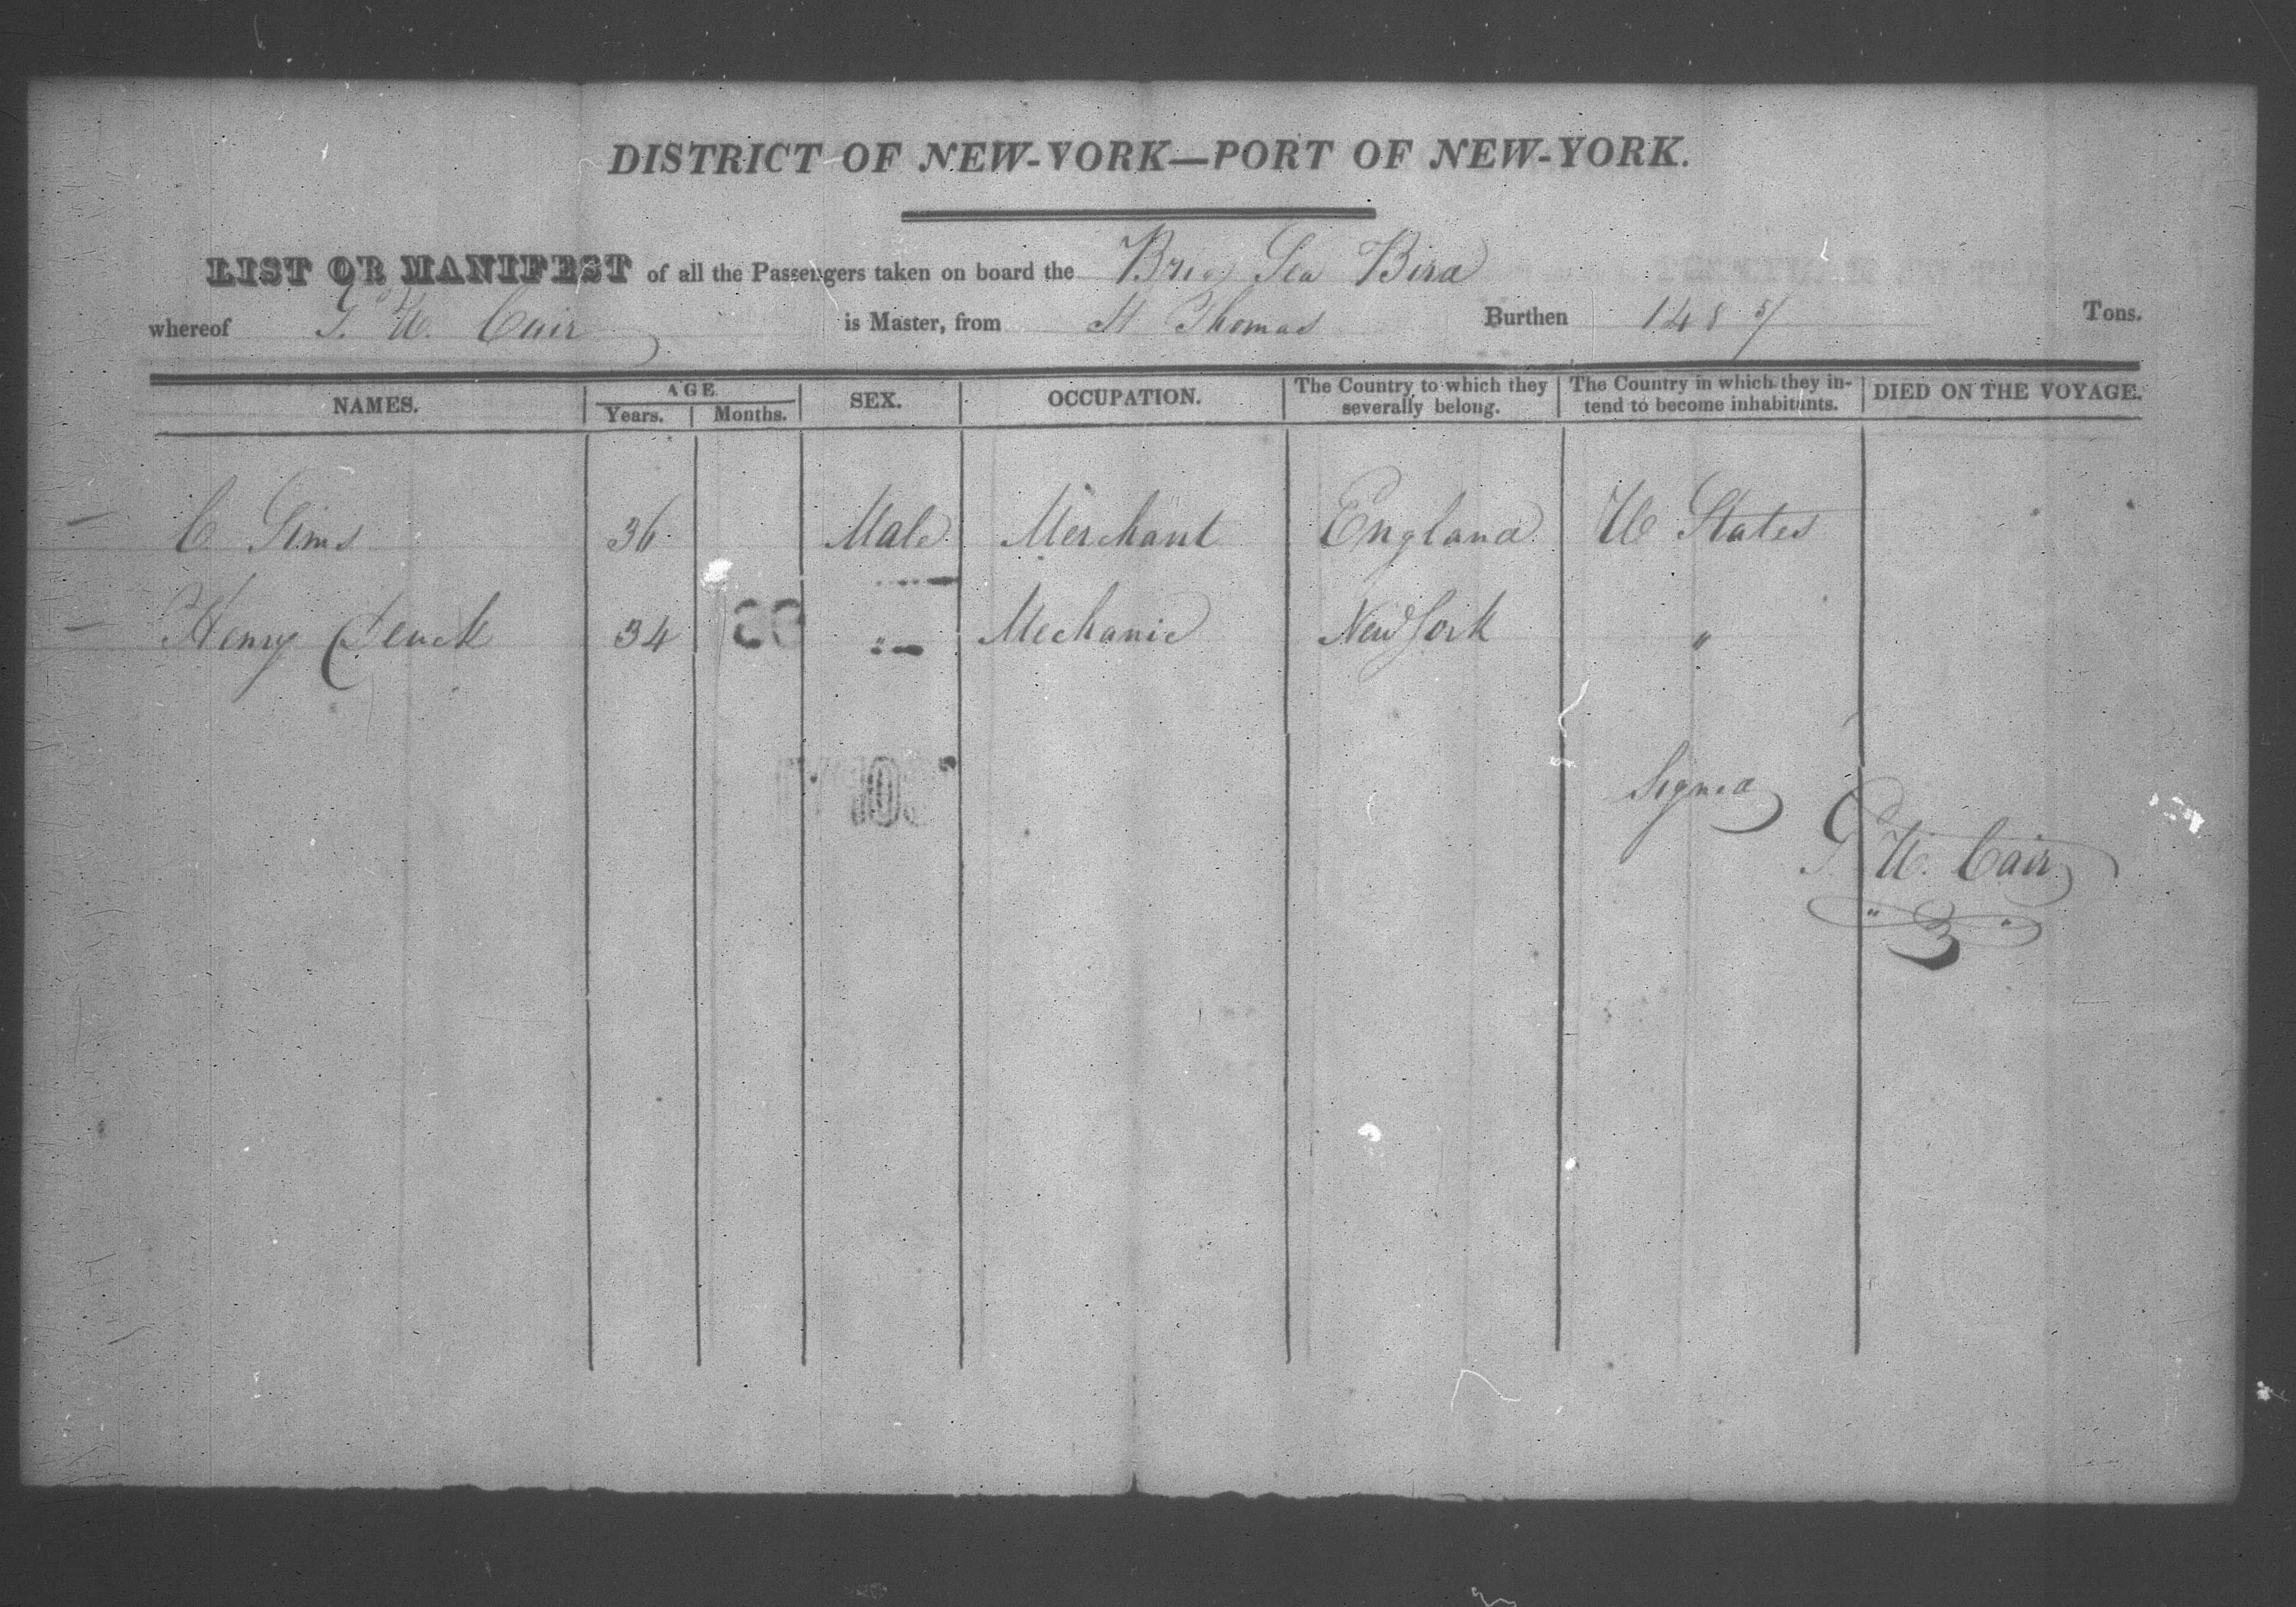 DISTRICT OF NEW-YORK—PORT OF NEW-YORK.
LIST OR MANIFEST of all the Passengers taken on board the Brig Sea Bird
whereof G. W. Cair is Master, from St Thomas Burthen 148 Tons.
NAMES. AGE. Years. Months. SEX. OCCUPATION. The Country to which they severally belong. The Country in which they intend to become inhabitants. DIED ON THE VOYAGE.
C Sims 36 Male Merchant England U States
Henry 34 " Mechanic New York "
Signed
G. W. Cair